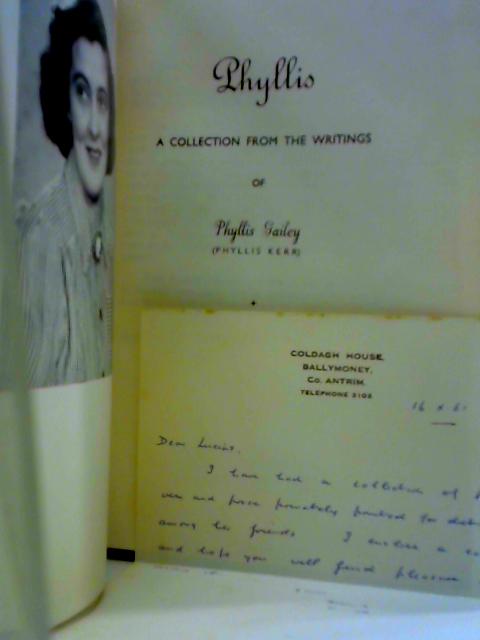 Phyllis
A COLLECTION FROM THE WRITINGS
OF
Phyllis Gailey
(PHYLLIS KERR)
COLDAGH HOUSE,
BALLYMONEY,
Co. ANTRIM.
TELEPHONE 2102
16 x 61
Dear
I have had a collection of
and prose privately printed for
among her friends I enclose a
and hope you will find pleasure